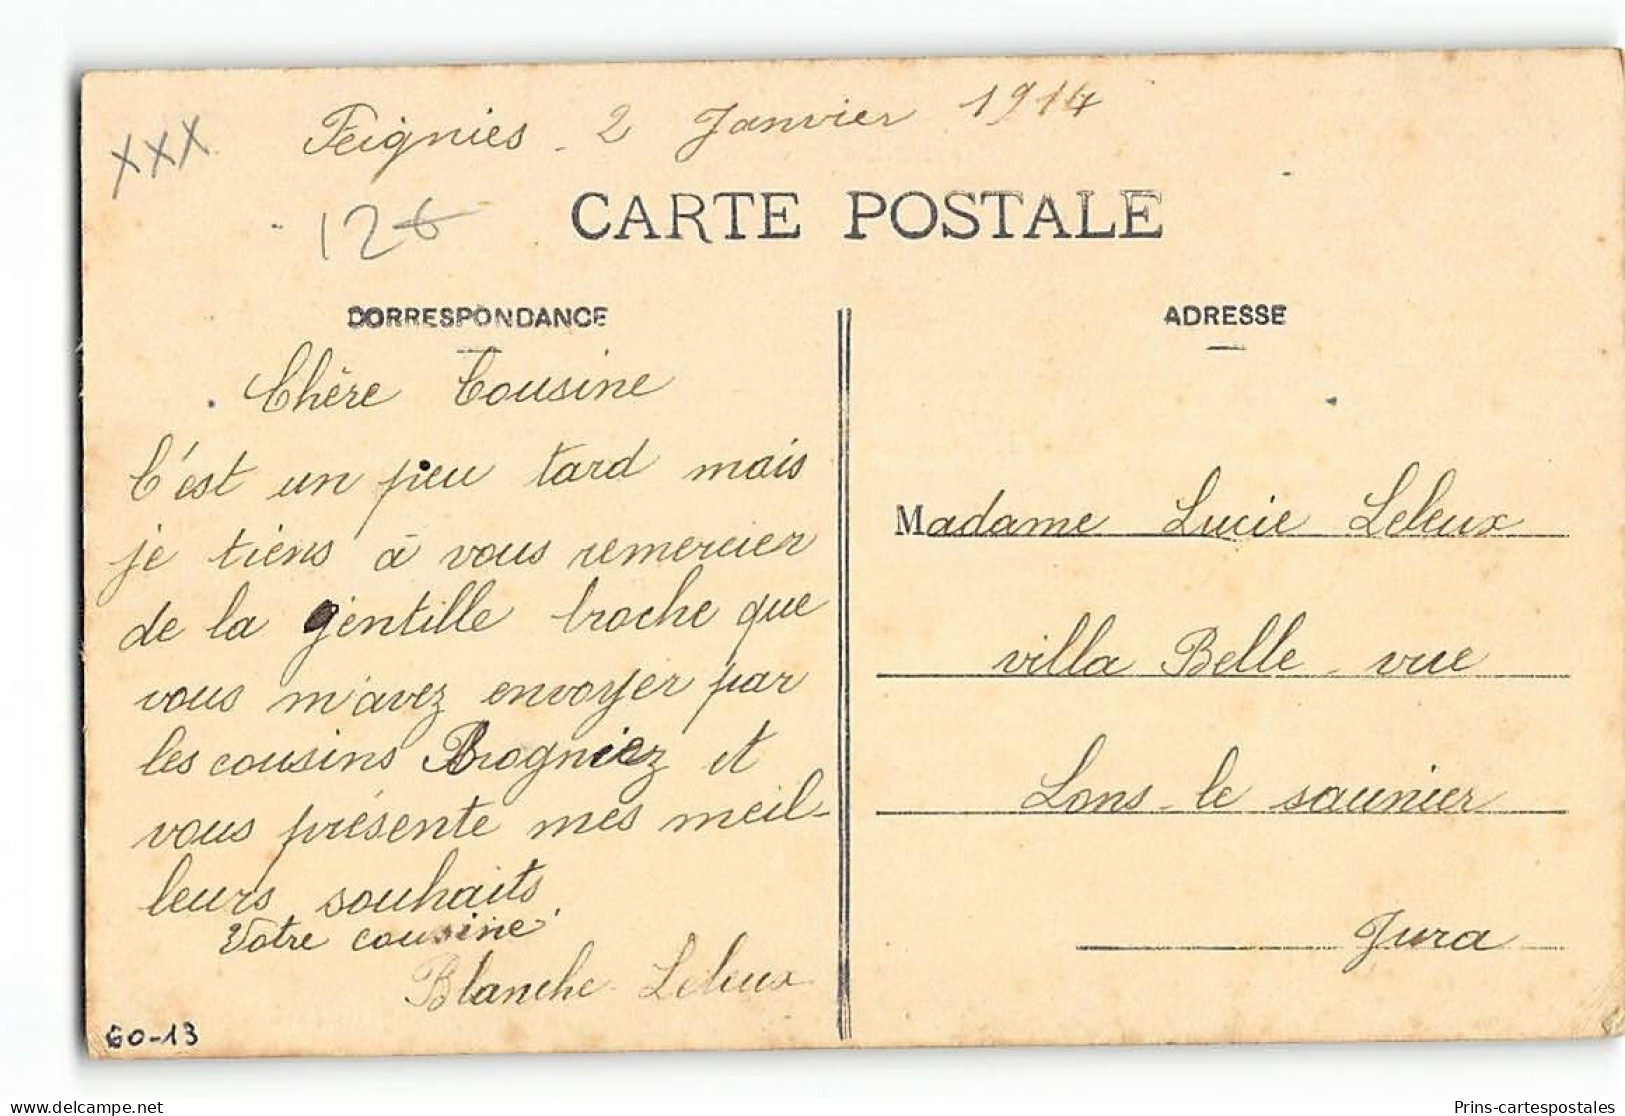 Feignies - 2 Janvier 1914
XXX
126
CARTE POSTALE
CORRESPONDANCE
Chère Cousine
C'est un peu tard mais
je tiens à vous remercier
de la gentille broche que
vous m'avez envoyer par
les cousins Brogniez et
vous présente mes meil-
leurs souhaits
Votre cousine
Blanche Leleux
60-13
ADRESSE
Madame Lucie Leleux
villa Belle-vue
Lons-le saunier
Jura
Prins-cartespostales